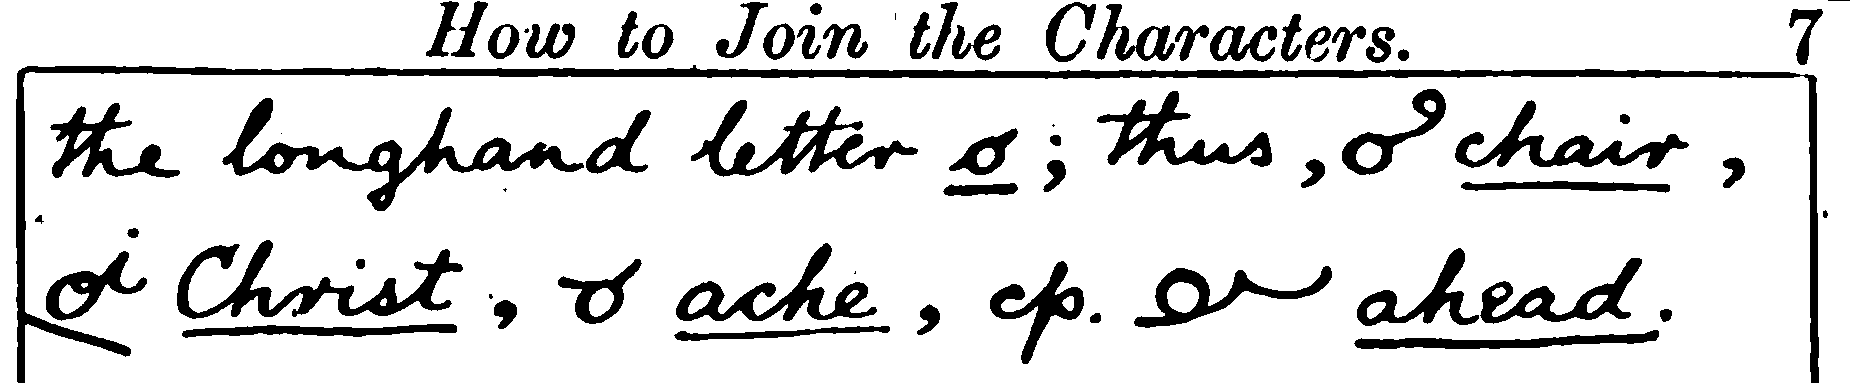 How to Join the Characters. 7
the longhand letter o; thus, chair,
Christ, ache, cp. ahead.